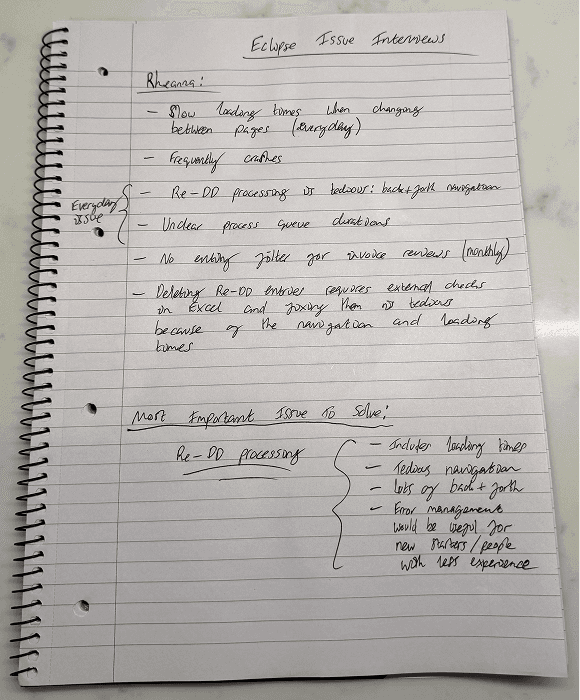 Eclipse Issue Interviews
Rheanna:
- Slow loading times when changing
between pages (everyday)
- Frequently crashes
Everyday
issue
- Re-DD processing is tedious: back + forth navigation
- Unclear process queue durations
- No entity filter for invoice reviews (monthly)
- Deleting Re-DD entries requires external checks
on Excel and fixing them is tedious
because of the navigation and loading
times
Most Important Issue To Solve:
Re-DD processing
- Includes loading times
- Tedious navigation
- Lots of back + forth
- Error management
would be useful for
new starters/people
with less experience